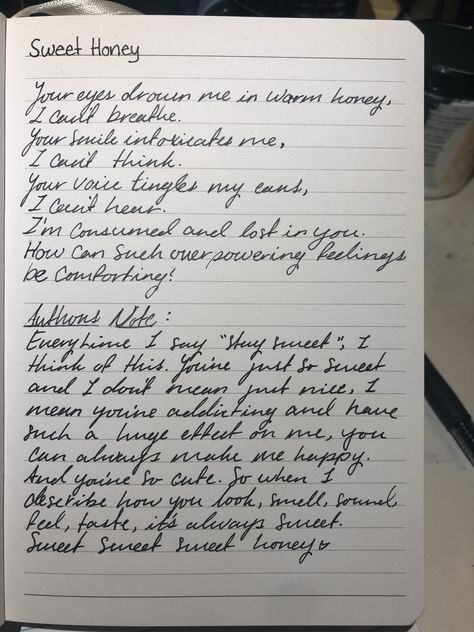 Sweet Honey
Your eyes drown me in warm honey,
I can't breathe.
Your smile intoxicates me,
I can't think.
Your voice tingles my ears,
I can't hear.
I'm consumed and lost in you.
How can such overpowering feelings
be comforting?
Authors Note:
Everytime I say "stay sweet", I
think of this. You're just so sweet
and I don't mean just nice, I
mean you're addicting and have
such a huge effect on me, you
can always make me happy.
And you're so cute. So when I
describe how you look, smell, sound,
feel, taste, it's always sweet.
Sweet sweet sweet honey♡